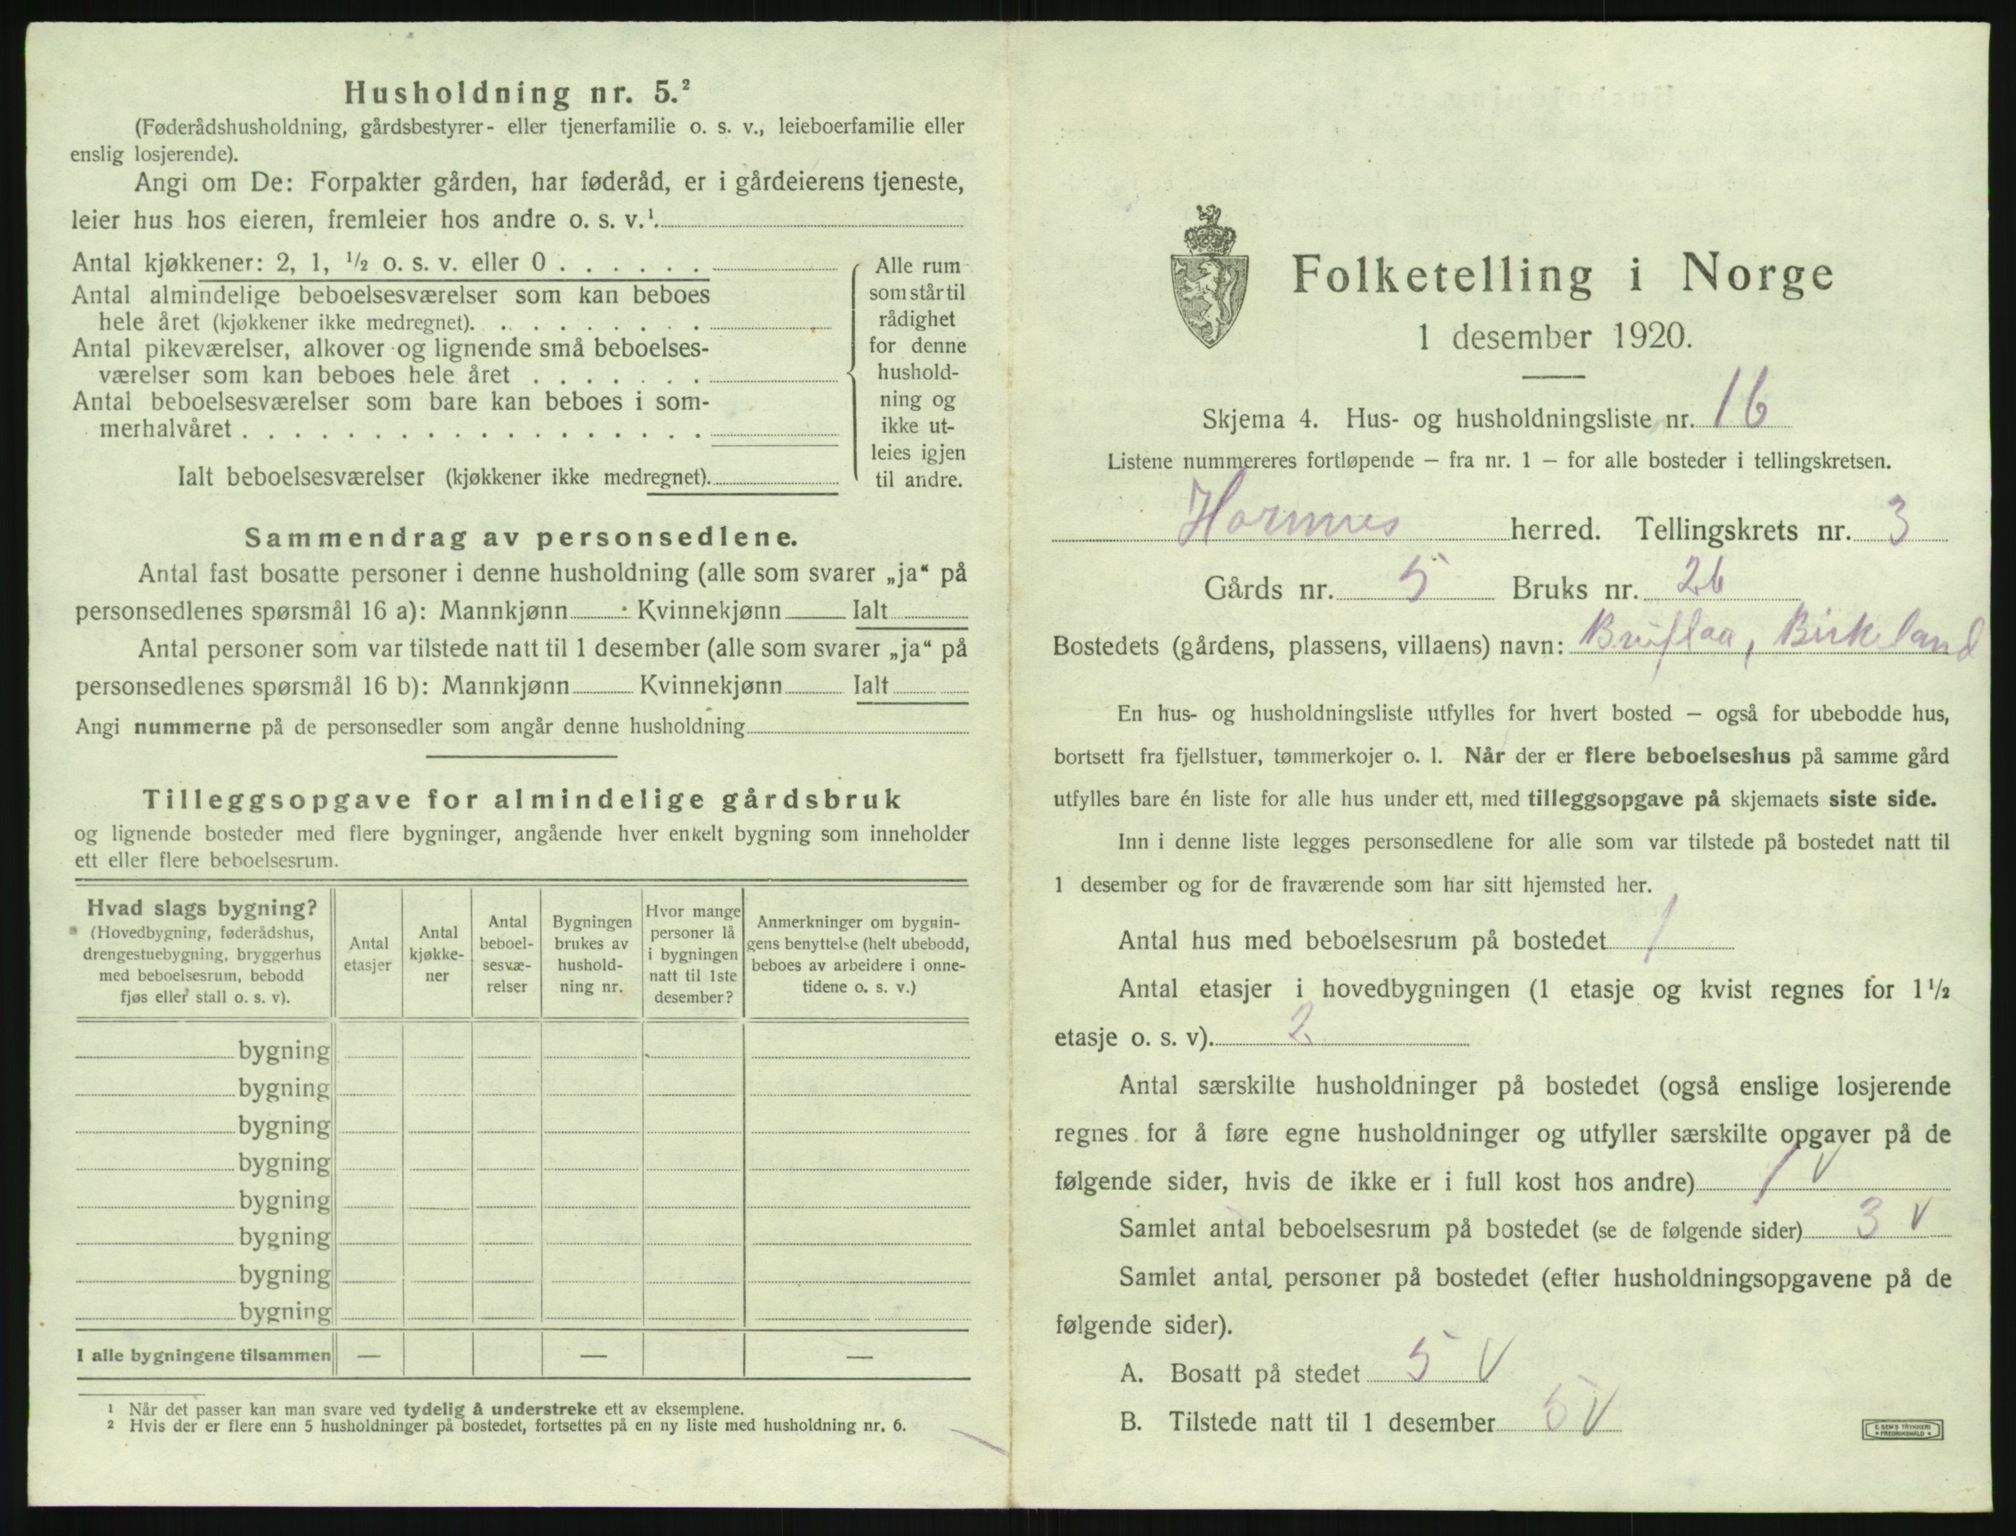 Husholdning nr. 5.²
(Føderådshusholdning, gårdsbestyrer- eller tjenerfamilie o. s. v., leieboerfamilie eller
enslig losjerende).
Angi om De: Forpakter gården, har føderåd, er i gårdeierens tjeneste,
leier hus hos eieren, fremleier hos andre o. s. v.¹
Antal kjøkkener: 2, 1, ½ o. s. v. eller 0 . . . . . .
Antal almindelige beboelsesværelser som kan beboes
hele året (kjøkkener ikke medregnet). . . . . . . . .
Antal pikeværelser, alkover og lignende små beboelses-
værelser som kan beboes hele året . . . . . . .
Antal beboelsesværelser som bare kan beboes i som-
merhalvåret . . . . . . . . . . . . . . . . . .
Ialt beboelsesværelser (kjøkkener ikke medregnet).
Alle rum
som står til
rådighet
for denne
hushold-
ning og
ikke ut-
leies igjen
til andre.
Sammendrag av personsedlene.
Antal fast bosatte personer i denne husholdning (alle som svarer „ja“ på
personsedlenes spørsmål 16 a): Mannkjønn Kvinnekjønn Ialt
Antal personer som var tilstede natt til 1 desember (alle som svarer „ja“ på
personsedlenes spørsmål 16 b): Mannkjønn Kvinnekjønn Ialt
Angi nummerne på de personsedler som angår denne husholdning
Tilleggsopgave for almindelige gårdsbruk
og lignende bosteder med flere bygninger, angående hver enkelt bygning som inneholder
ett eller flere beboelsesrum.
Hvad slags bygning?
(Hovedbygning, føderådshus,
drengestuebygning, bryggerhus
med beboelsesrum, bebodd
fjøs eller stall o. s. v).
Antal
etasjer
Antal
kjøkke-
ner
Antal
beboel-
sesvæ-
relser
Bygningen
brukes av
hushold-
ning nr.
Hvor mange
personer lå
i bygningen
natt til 1ste
desember?
Anmerkninger om bygnin-
gens benyttelse (helt ubebodd,
beboes av arbeidere i onne-
tidene o. s. v.)
bygning
bygning
bygning
bygning
bygning
bygning
bygning
bygning
I alle bygningene tilsammen — — —
¹ Når det passer kan man svare ved tydelig å understreke ett av eksemplene.
² Hvis der er flere enn 5 husholdninger på bostedet, fortsettes på en ny liste med husholdning nr. 6.
Folketelling i Norge
1 desember 1920.
Skjema 4. Hus- og husholdningsliste nr. 16
Listene nummereres fortløpende – fra nr. 1 – for alle bosteder i tellingskretsen.
Hornnes herred. Tellingskrets nr. 3
Gårds nr. 5 Bruks nr. 26
Bostedets (gårdens, plassens, villaens) navn: Breiflaa, Birkeland
En hus- og husholdningsliste utfylles for hvert bosted – også for ubebodde hus,
bortsett fra fjellstuer, tømmerkojer o. l. Når der er flere beboelseshus på samme gård
utfylles bare én liste for alle hus under ett, med tilleggsopgave på skjemaets siste side.
Inn i denne liste legges personsedlene for alle som var tilstede på bostedet natt til
1 desember og for de fraværende som har sitt hjemsted her.
Antal hus med beboelsesrum på bostedet 1
Antal etasjer i hovedbygningen (1 etasje og kvist regnes for 1½
etasje o. s. v). 2
Antal særskilte husholdninger på bostedet (også enslige losjerende
regnes for å føre egne husholdninger og utfyller særskilte opgaver på de
følgende sider, hvis de ikke er i full kost hos andre) 1 V
Samlet antal beboelsesrum på bostedet (se de følgende sider) 3 V
Samlet antal personer på bostedet (efter husholdningsopgavene på de
følgende sider).
A. Bosatt på stedet 5 V
B. Tilstede natt til 1 desember 5 V
E. SEM'S TRYKKERI
FREDRIKSHALD